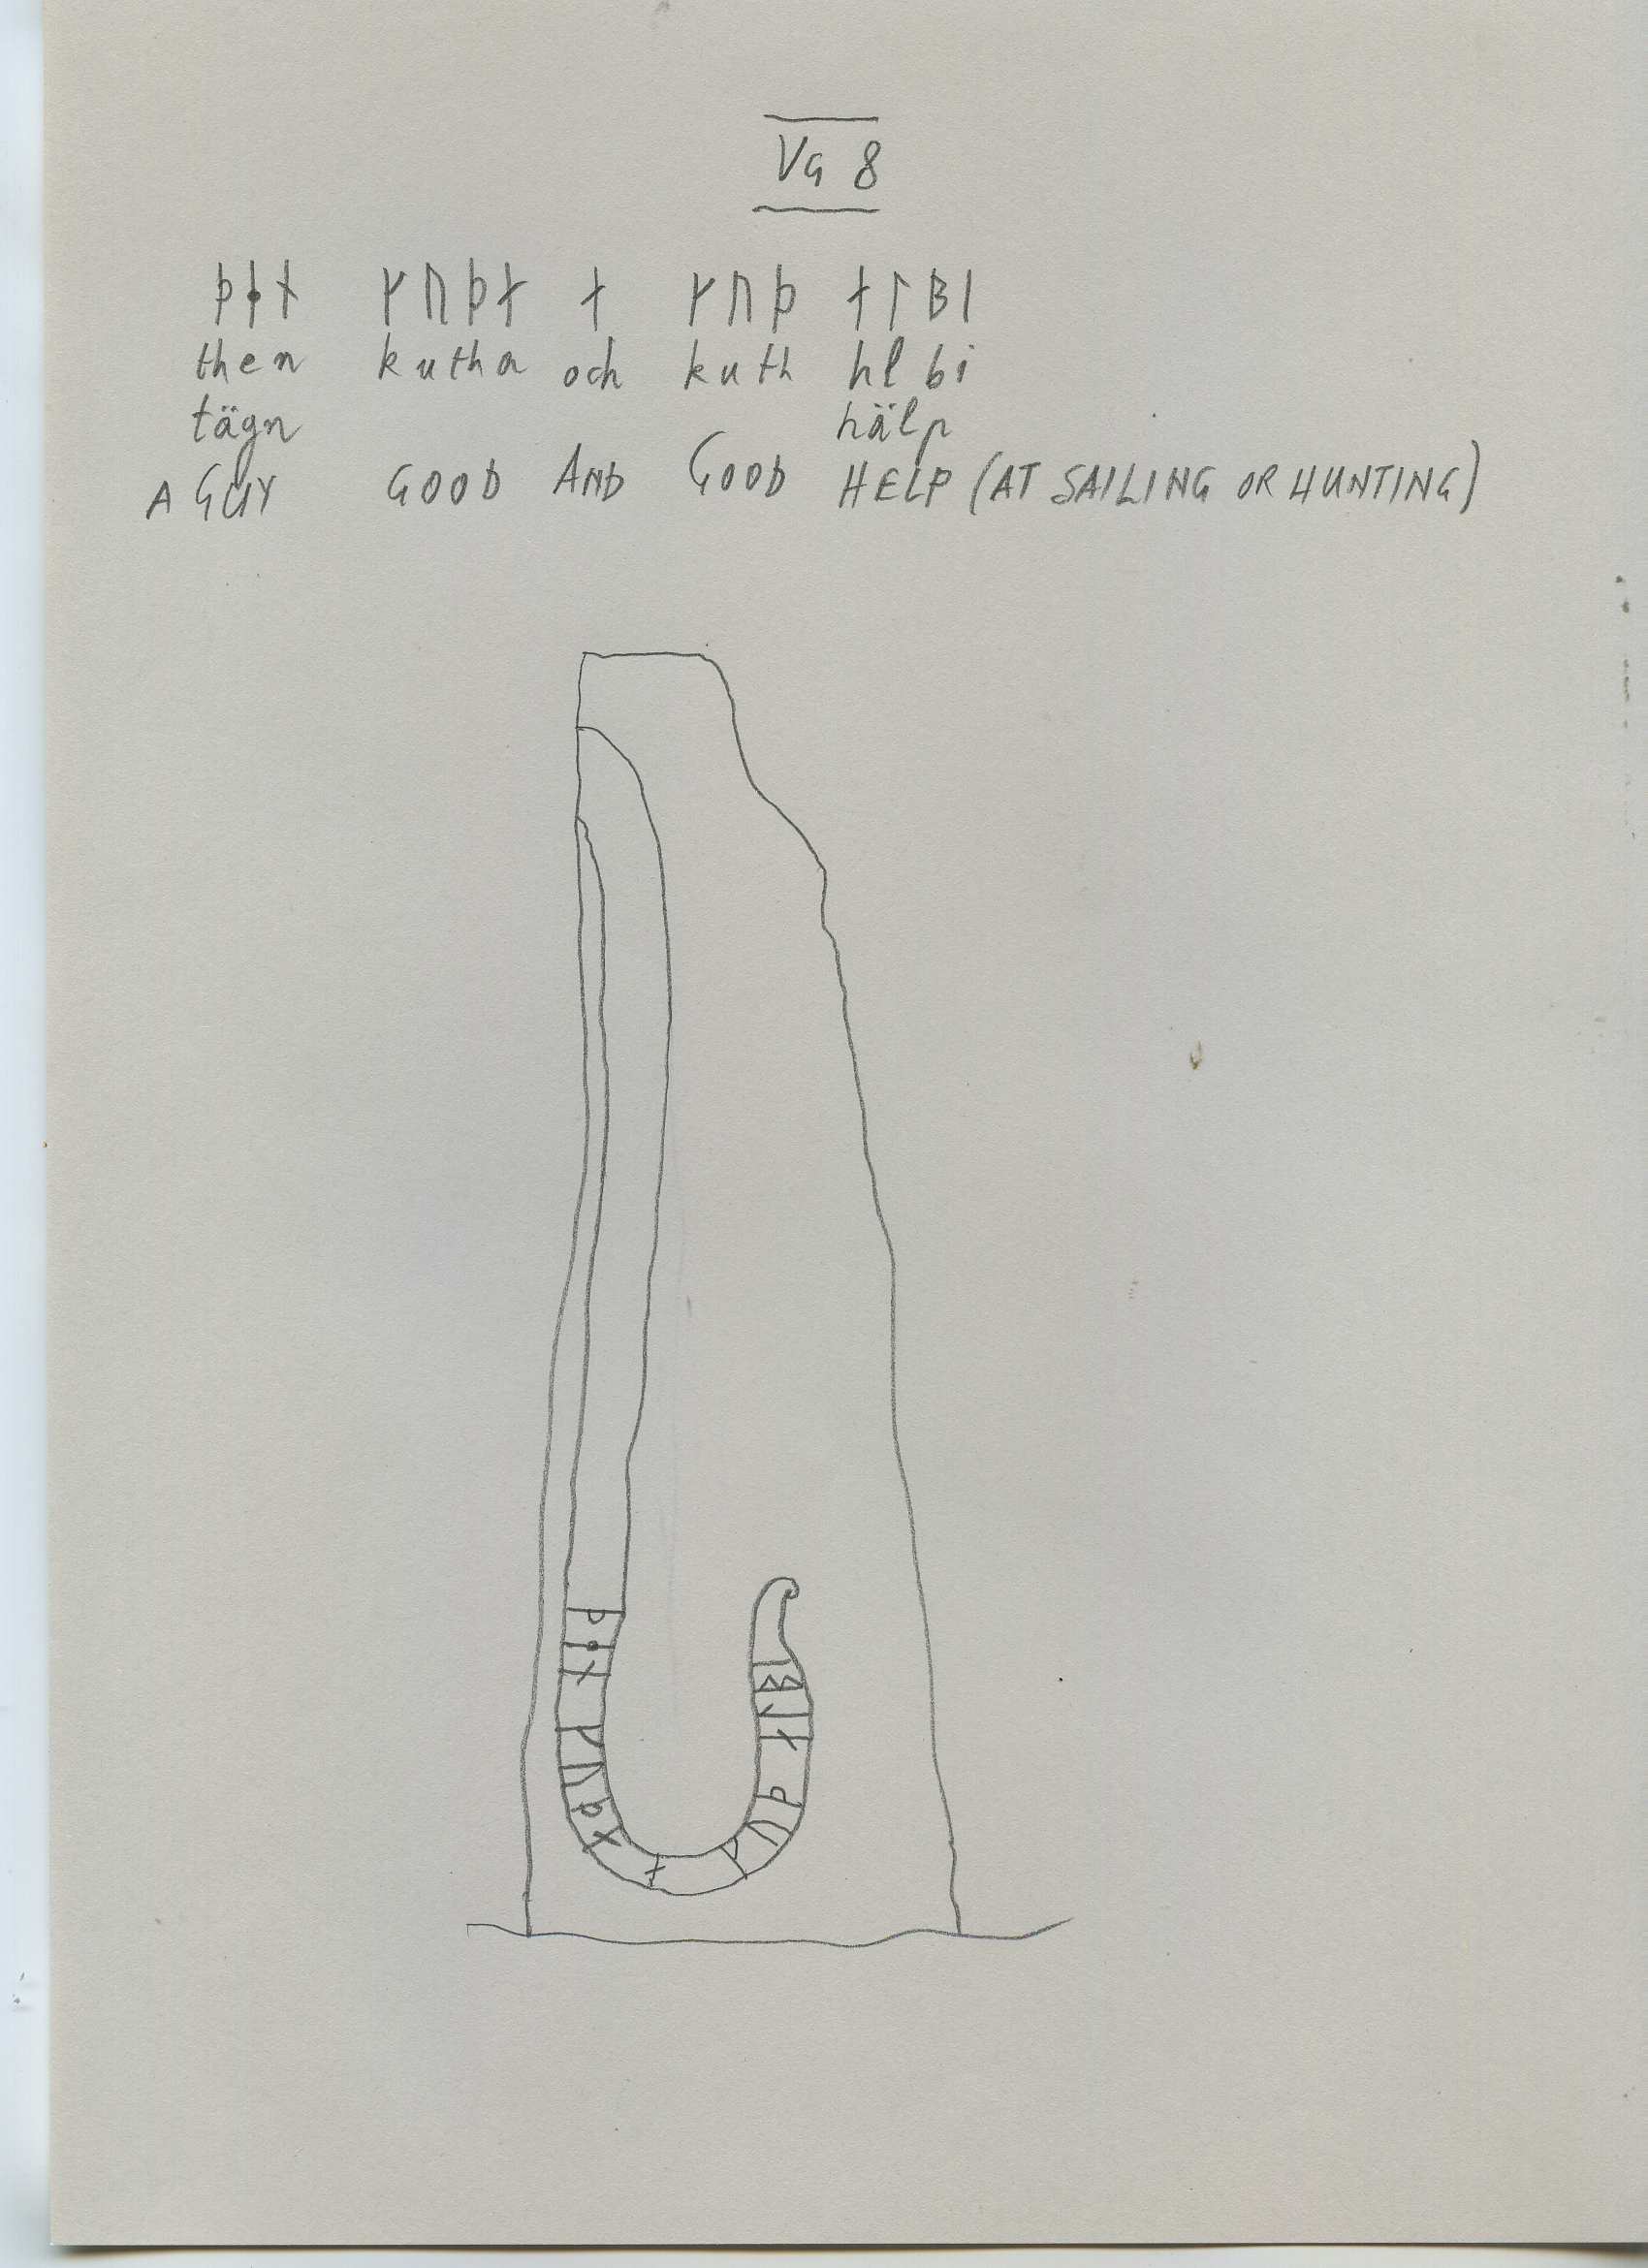 VG 8
ᚦᛂᚾ ᚴᚢᚦᛅ ᛅ ᚴᚢᚦ ᛅᛚᛒᛁ
then kutha och kuth hlbi
tägn hälp
A GUY GOOD AND GOOD HELP (AT SAILING OR HUNTING)
ᚦᛂᚾ ᚴᚢᚦᛅ ᛅ ᚴᚢᚦ ᛅᛚᛒᛁ